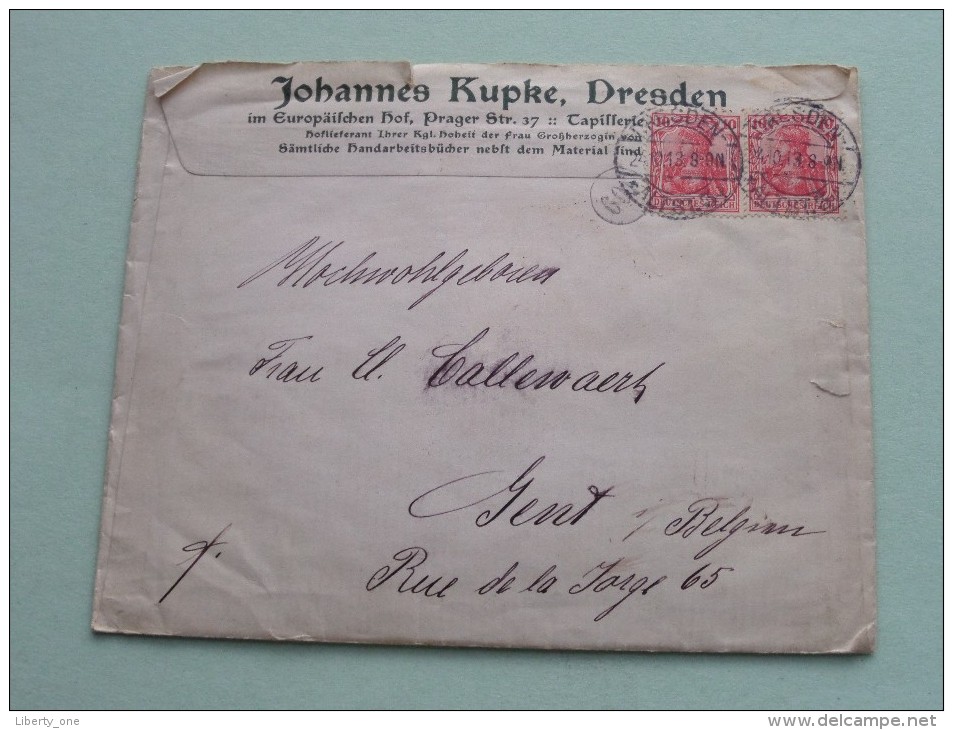 Johannes Kupke, Dresden
im Europäischen Hof, Prager Str. 37 :: Tapisserie
Hoflieferant Ihrer Kgl. Hoheit der Frau Großherzogin von
Sämtliche Handarbeitsbücher nebst dem Material sind
10 10
DRESDEN DRESDEN
24.10.13.8-9N 24.10.13.8-9N
DEUTSCHES REICH DEUTSCHES REICH
Hochwohlgeboren
Frau Callewaert
Gent
Belgien
Rue de la Forge 65
Liberty_one
http://www.delcampe.net